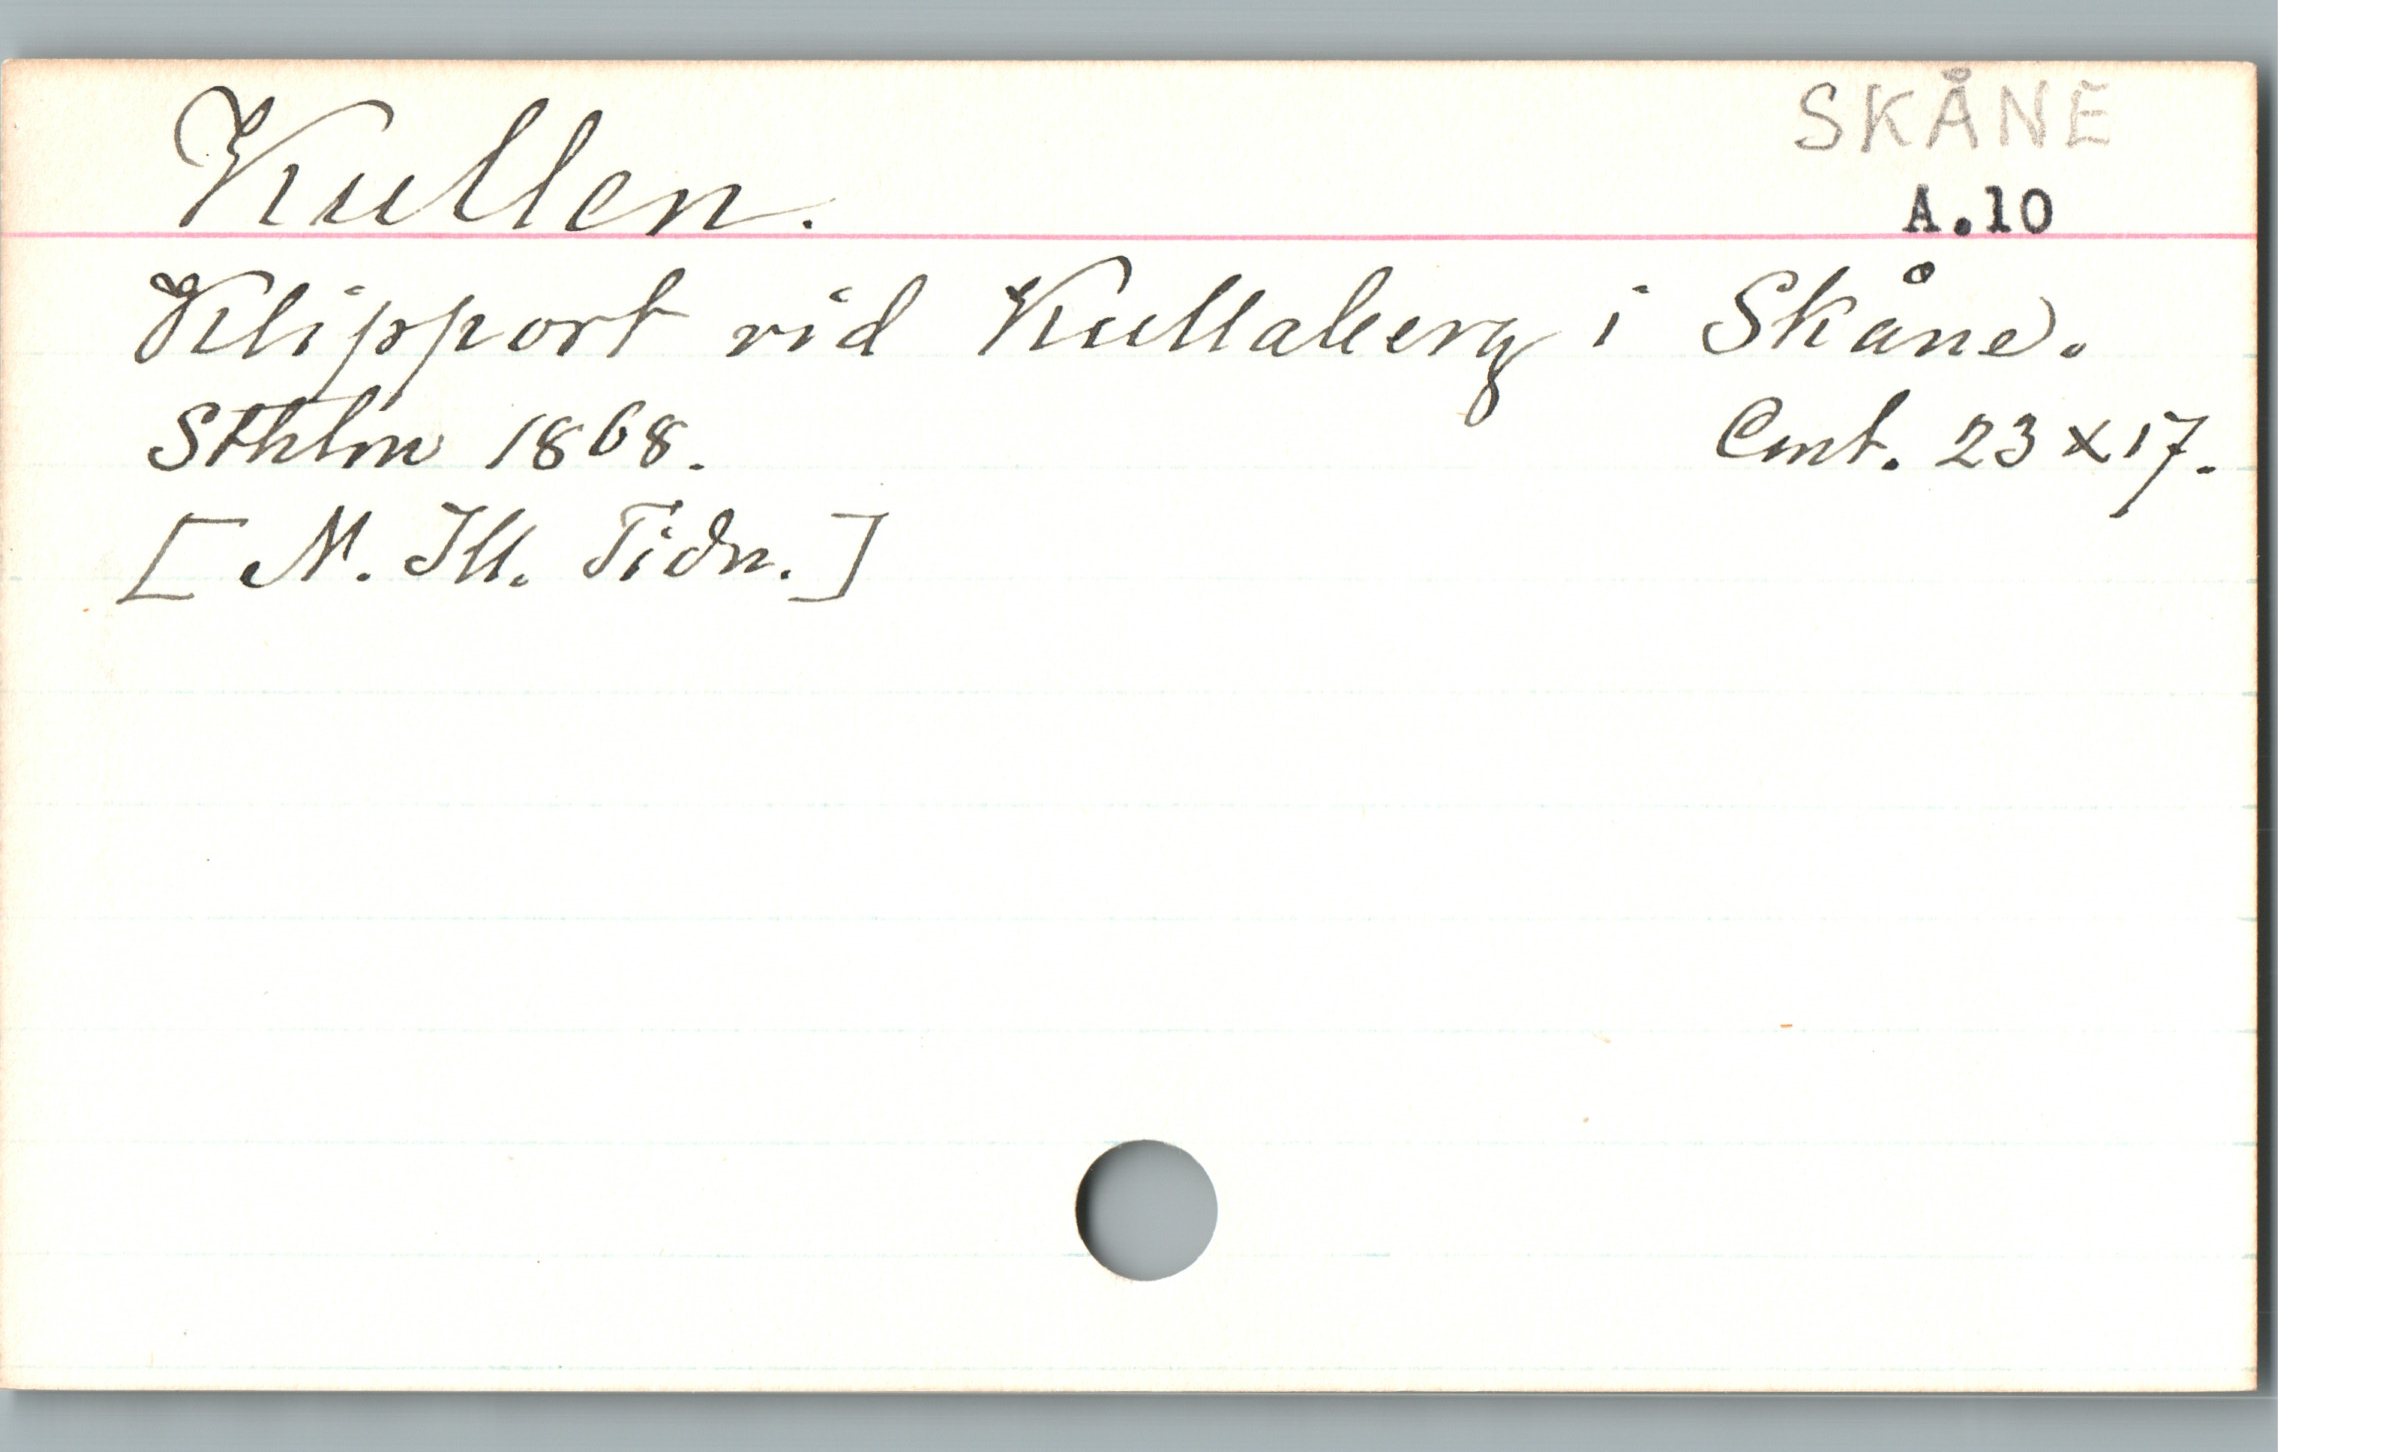 SKÅNE
Kullen.
A.10
Klipport vid Kullaberg i Skåne.
Sthlm 1868. Cmt. 23 x 17.
[N. Ill. Tidn.]